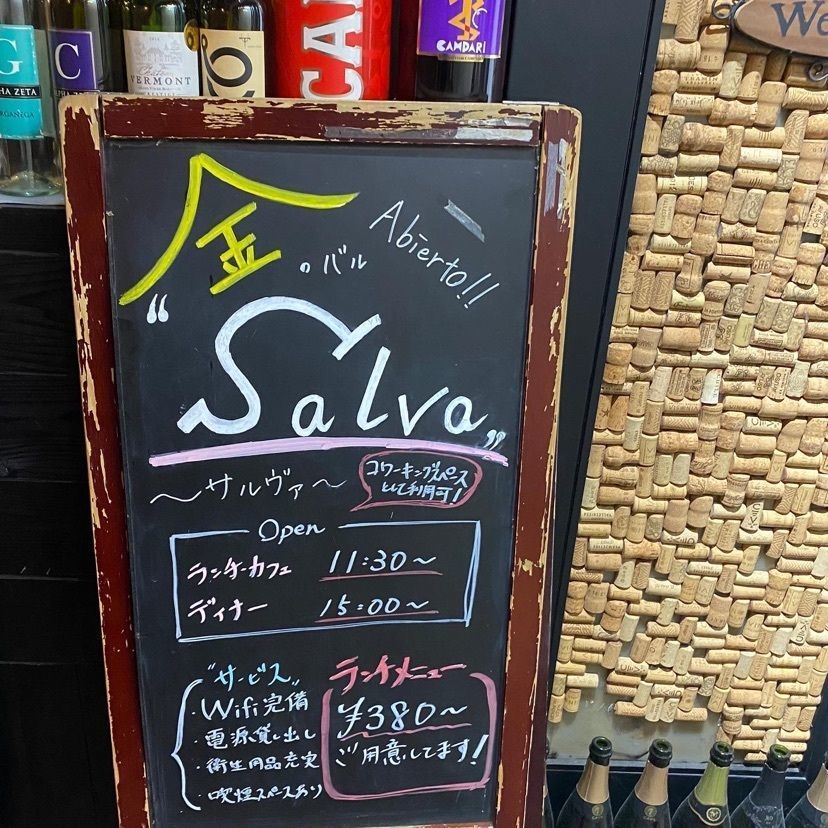 G
C
ALPHA ZETA
VERMONT
CAM
CAMPARI
We
金
のバル
Abierto!!
"Salva"
～サルヴァ～
コワーキングスペース
として利用可！
Open
ランチ・カフェ 11:30～
ディナー 15:00～
"サービス"
・Wifi完備
・電源貸し出し
・衛生用品充実
・喫煙スペースあり
ランチメニュー
¥380～
ご用意してます！